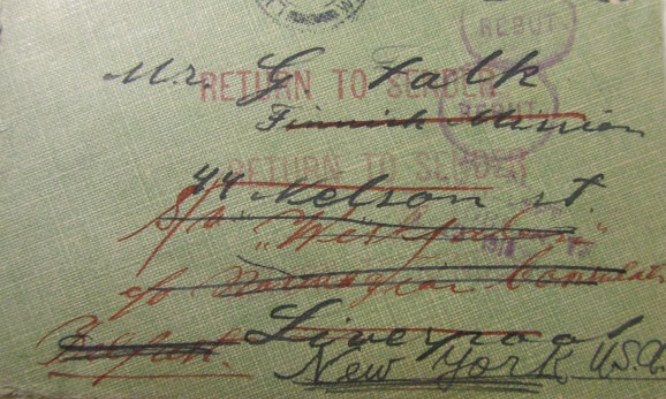 REBUT
Mr. G Falk
RETURN TO SENDER
REBUT
Finnish Mission
RETURN TO SENDER
44 Nelson st.
S/S
c/o Norwegian Consulate
Belfast.
Liverpool
New York U.S.A.